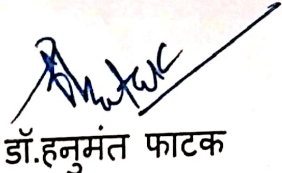 डॉ.हनुमंत फाटक